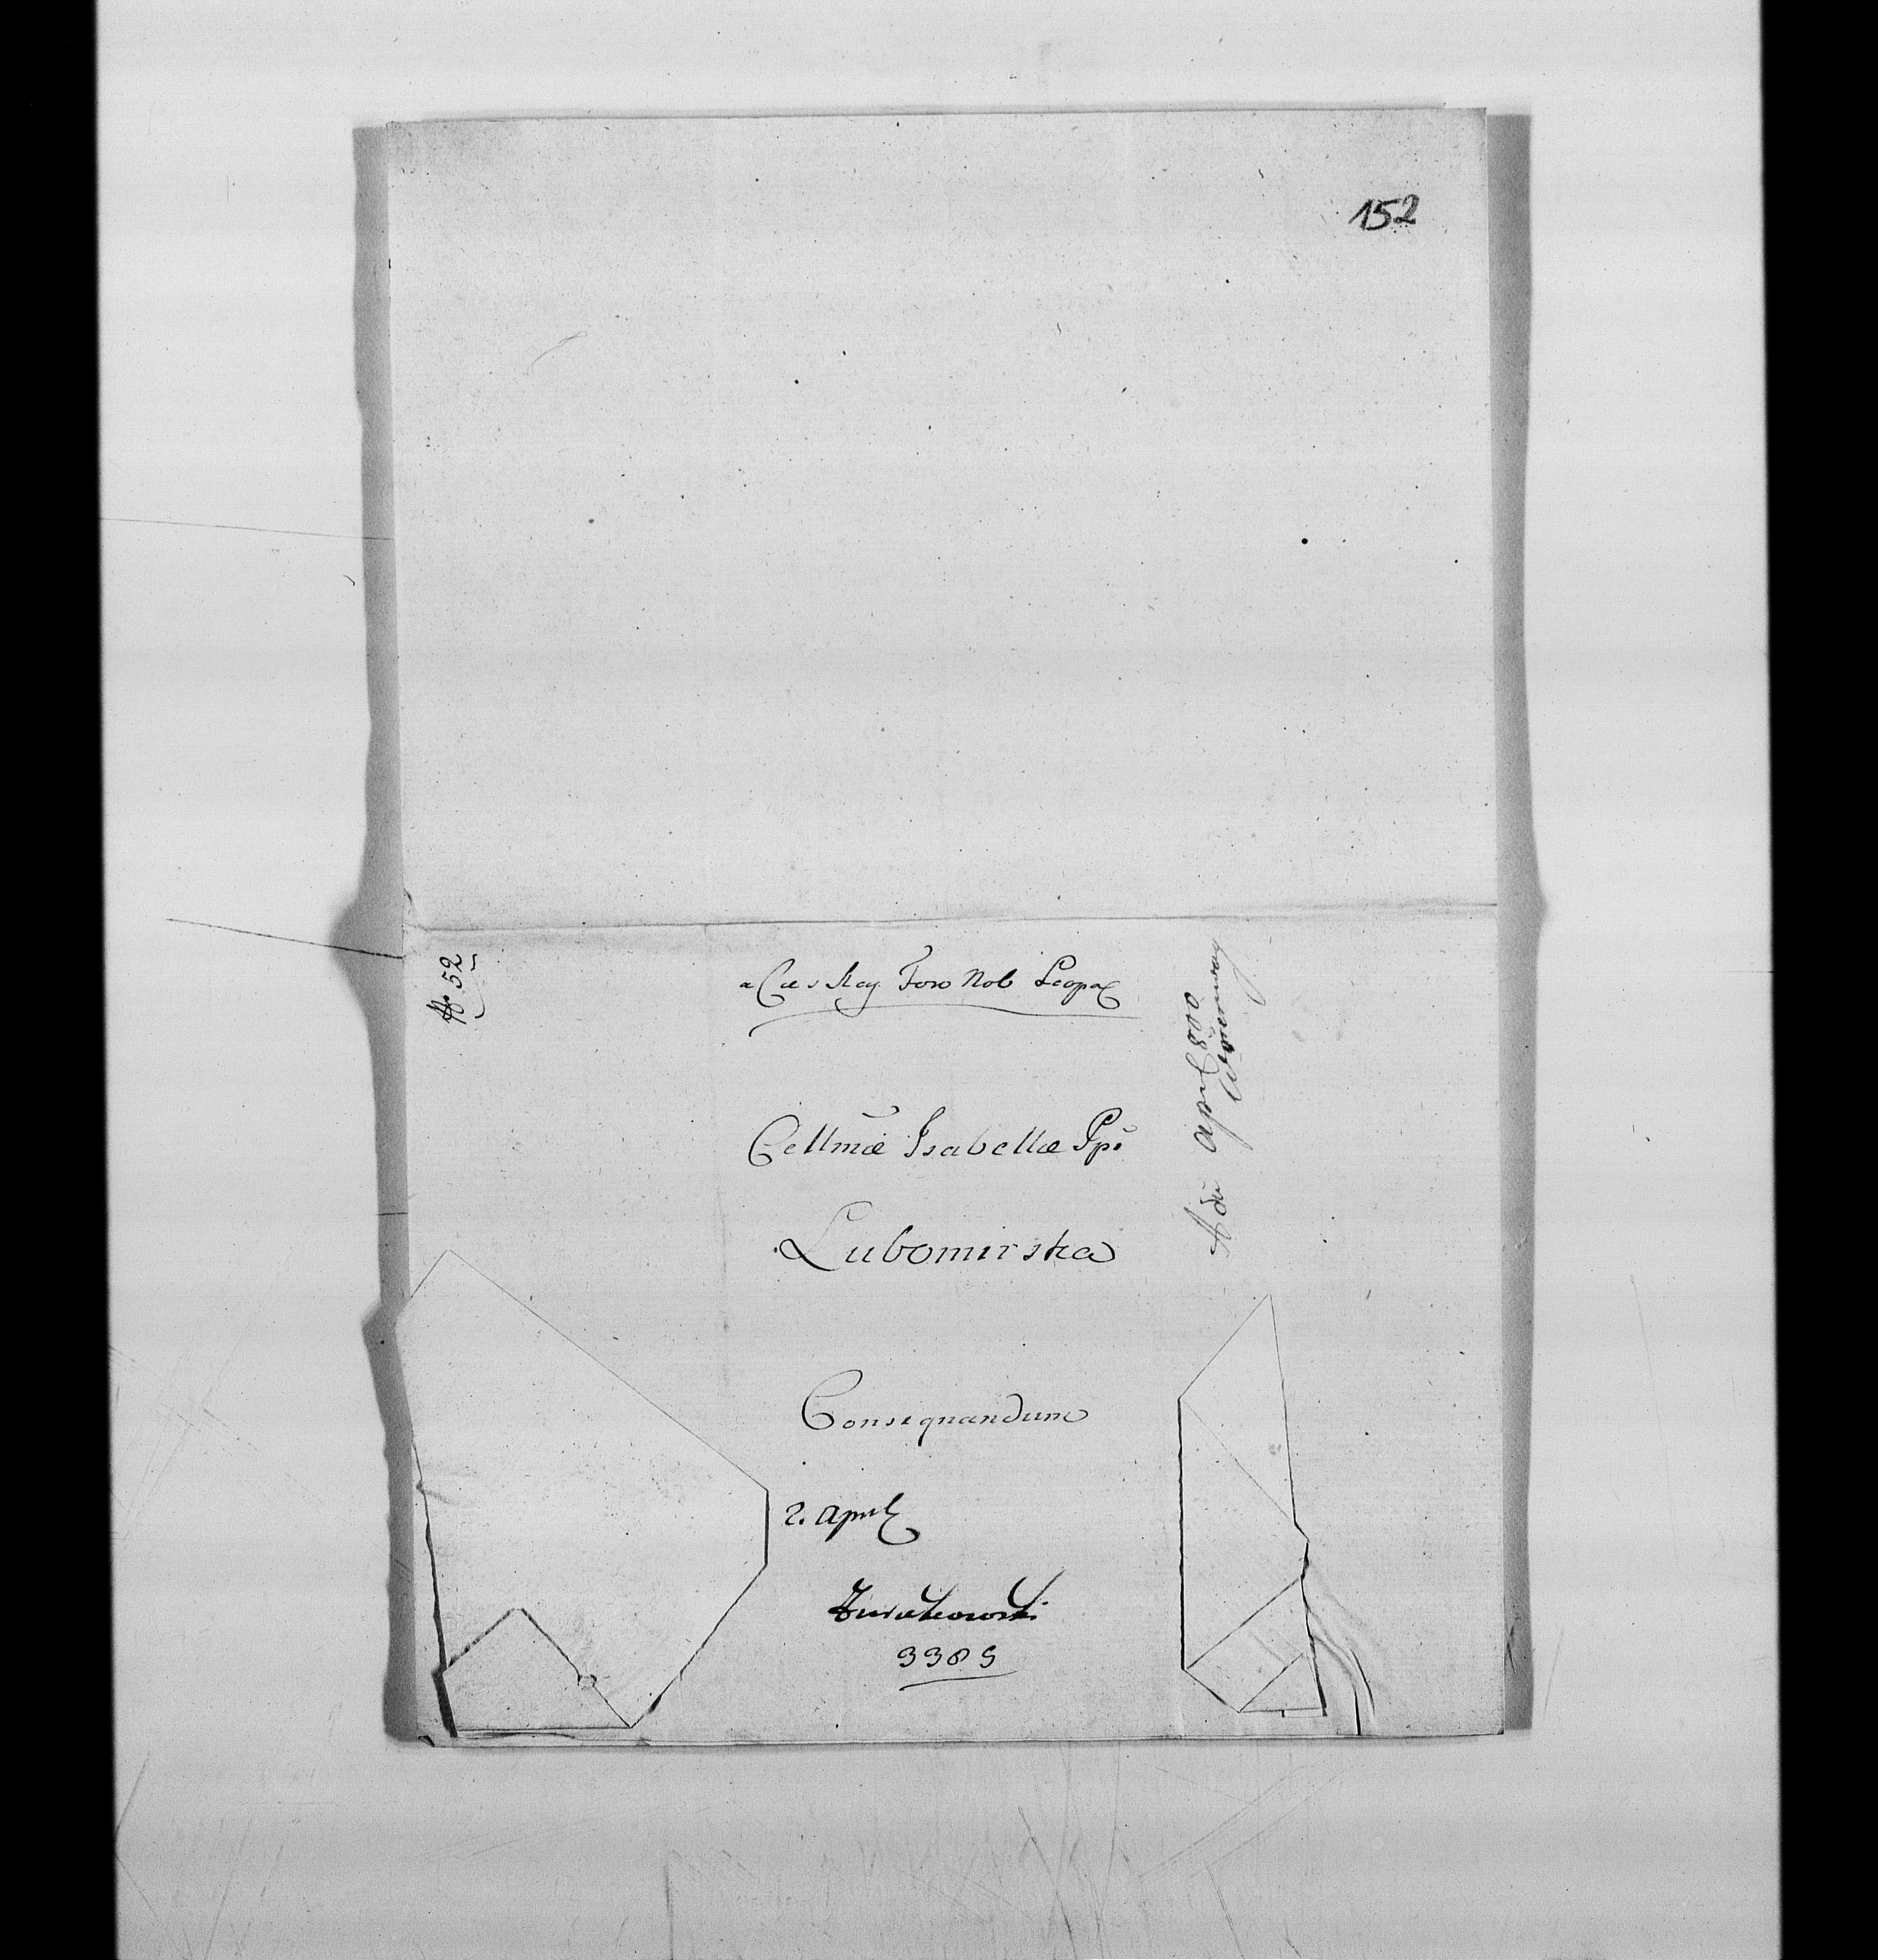 152
No 52
a Caes Reg Foro Nob Leopol
Cellmæ Isabellæ Ppi
Lubomirska
Consignandum
2. April
3389
April 800